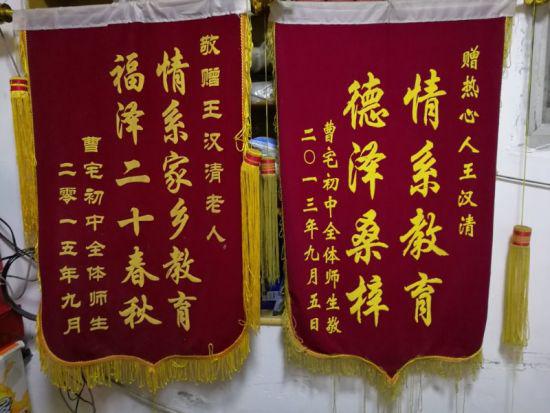 敬赠王汉清老人
情系家乡教育
福泽二十春秋
曹宅初中全体师生
二零一五年九月
赠热心人王汉清
情系教育
德泽桑梓
曹宅初中全体师生敬
二〇一三年九月五日